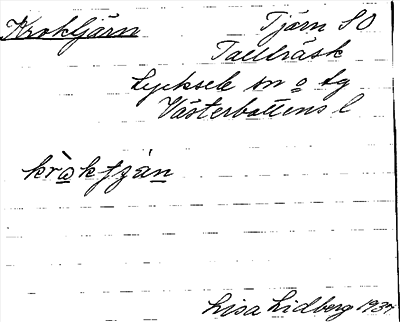 Kroktjärn Tjärn SO
Tallträsk
Lycksele sn o tg
Västerbottens l
kr̀ɷktján
Lisa Lidberg 1937.